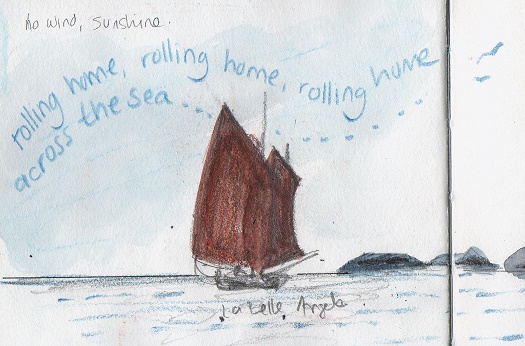 no wind, sunshine.
rolling home, rolling home, rolling home
across the sea...
La Belle Angela.